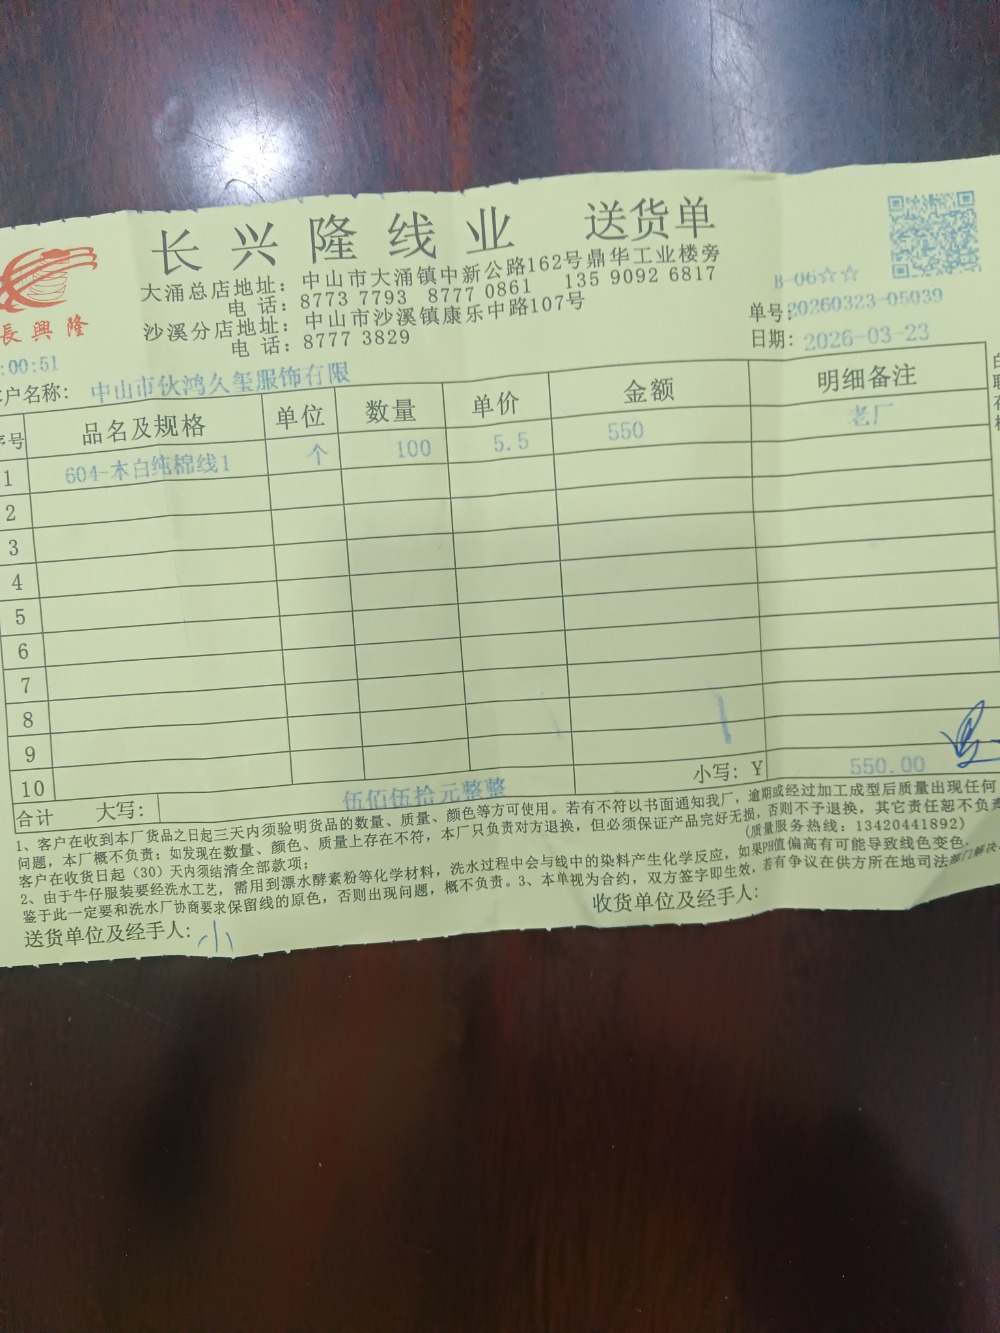 长兴隆线业 送货单
長興隆
大涌总店地址：中山市大涌镇中新公路162号鼎华工业楼旁
电 话：8773 7793 8777 0861 135 9092 6817
沙溪分店地址：中山市沙溪镇康乐中路107号
电 话：8777 3829
B-06☆☆
单号:20260323-05039
日期: 2026-03-23
:00:51
客户名称: 中山市伙鸿久玺服饰有限
序号 品名及规格 单位 数量 单价 金额 明细备注
1 604-本白纯棉线1 个 100 5.5 550 老厂
2
3
4
5
6
7
8
9
10
合计 大写: 伍佰伍拾元整整 小写: Y 550.00
1、客户在收到本厂货品之日起三天内须验明货品的数量、质量、颜色等方可使用。若有不符以书面通知我厂，逾期或经过加工成型后质量出现任何
问题，本厂概不负责；如发现在数量、颜色、质量上存在不符，本厂只负责对方退换，但必须保证产品完好无损，否则不予退换，其它责任恕不负责
客户在收货日起（30）天内须结清全部款项； (质量服务热线：13420441892)
2、由于牛仔服装要经洗水工艺，需用到漂水酵素粉等化学材料，洗水过程中会与线中的染料产生化学反应，如果PH值偏高有可能导致线色变色，
鉴于此一定要和洗水厂协商要求保留线的原色，否则出现问题，概不负责。3、本单视为合约，双方签字即生效，若有争议在供方所在地司法部门解决。
送货单位及经手人: 小
收货单位及经手人: